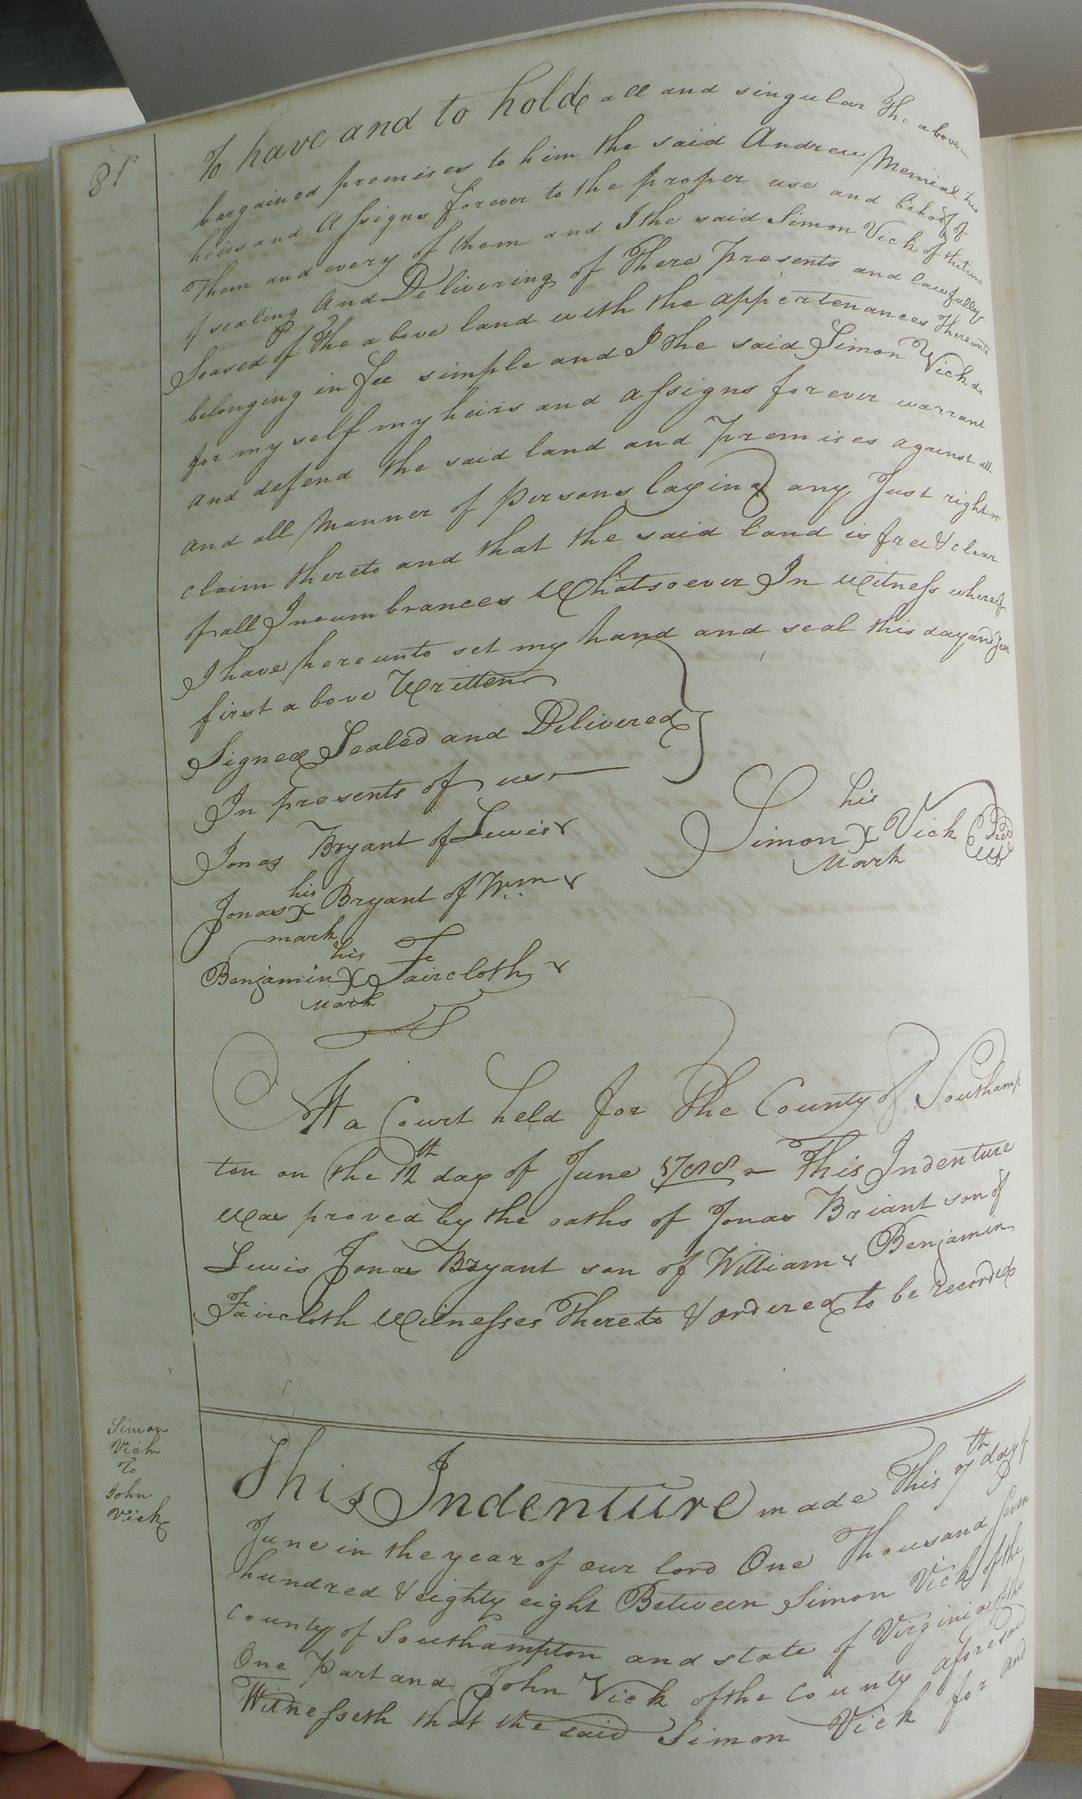 81
To have and to hold all and singular the above
bargained premises to him the said Andrew his
heirs and Assigns forever to the proper use and behoof of
Them and every of them and I the said Simon Vick of the time
of sealing And Delivering of There Presents and lawfully
Seased of The above land with the appertenances Thereunto
belonging in fee simple and I the said Simon Vick do
for my self my heirs and assigns forever warrant
and defend the said land and Premises against all
and all Manner of Persons laying any Just right or
claim thereto and that the said land is free & clear
of all Incumbrances Whatsoever In Witness whereof
I have hereunto set my hand and seal this day and year
first above Written
Signed Sealed and Delivered
In presents of us
Jonas Bryant of Lewis
his
Simon X Vick
Mark
his
Jonas X Bryant of Wm
mark
his
Benjamin X Faircloth
Mark
At a Court held for The County of Southamp
ton on the 12th day of June 1788 This Indenture
Was proved by the oaths of Jonas Briant son of
Lewis Jonas Bryant son of William & Benjamin
Faircloth Witnesses Thereto & ordered to be recorded
Simon
Vick
To
John
Vick
This Indenture made This 7th day of
June in the year of our lord One Thousand seven
hundred & eighty eight Between Simon Vick of the
County of Southampton and state of Virginia of the
One Part and John Vick of the County aforesaid
Witnesseth that the said Simon Vick for and